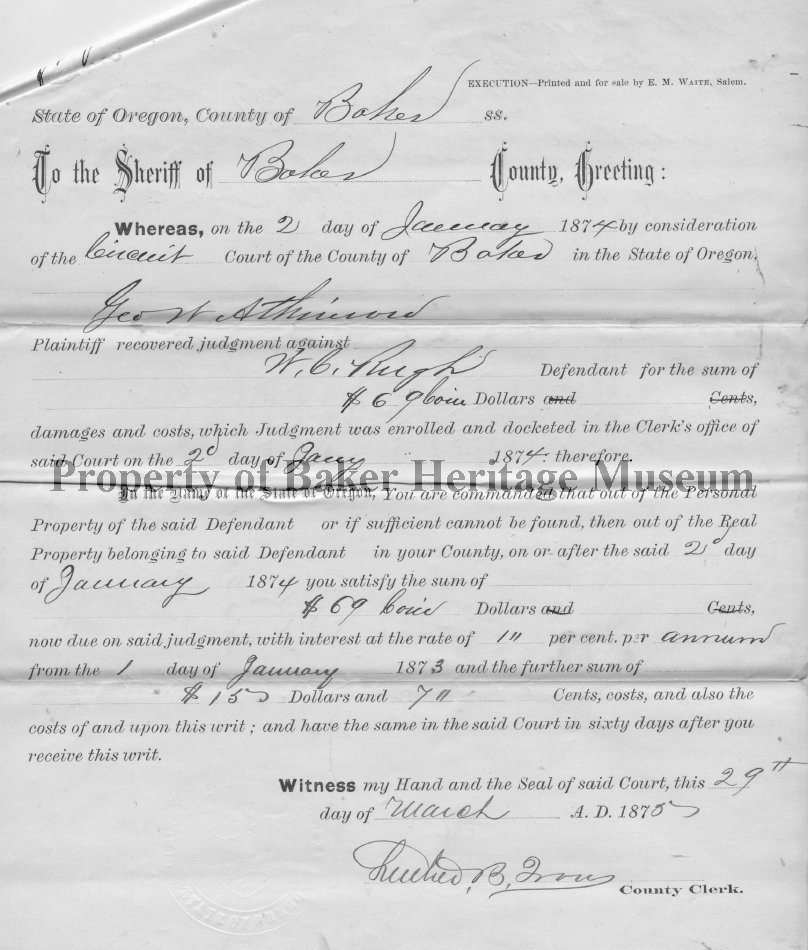 EXECUTION—Printed and for sale by E. M. WAITE, Salem.
State of Oregon, County of Baker ss.
To the Sheriff of Baker County, Greeting:
Whereas, on the 2 day of January 1874 by consideration
of the Circuit Court of the County of Baker in the State of Oregon,
Geo W Atkinson
Plaintiff recovered judgment against
W. C. Rugh Defendant for the sum of
$69 Coin Dollars and Cents,
damages and costs, which Judgment was enrolled and docketed in the Clerk's office of
said Court on the 2d day of Jany 1874: therefore.
Property of Baker Heritage Museum
In the Name of the State of Oregon, You are commanded that out of the Personal
Property of the said Defendant or if sufficient cannot be found, then out of the Real
Property belonging to said Defendant in your County, on or after the said 2d day
of January 1874 you satisfy the sum of
$69 Coin Dollars and Cents,
now due on said judgment, with interest at the rate of 1" per cent. per annum
from the 1 day of January 1873 and the further sum of
$15 Dollars and 7" Cents, costs, and also the
costs of and upon this writ; and have the same in the said Court in sixty days after you
receive this writ.
Witness my Hand and the Seal of said Court, this 29th
day of March A. D. 1875
B. County Clerk.